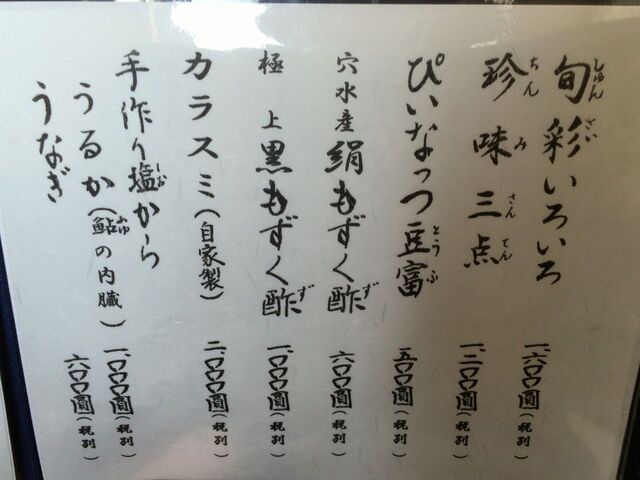 旬彩いろいろ 一、六〇〇圓(税別)
しゅんさい
珍味三点 一、二〇〇圓(税別)
ちんみさんてん
ぴいなっつ豆富 五〇〇圓(税別)
とうふ
穴水産 絹もずく酢 六〇〇圓(税別)
ず
極上 黒もずく酢 一、〇〇〇圓(税別)
ず
カラスミ(自家製) 二、〇〇〇圓(税別)
手作り塩から
しお
うるか(鮎の内臓) 一、〇〇〇圓(税別)
あゆ
うなぎ 六〇〇圓(税別)